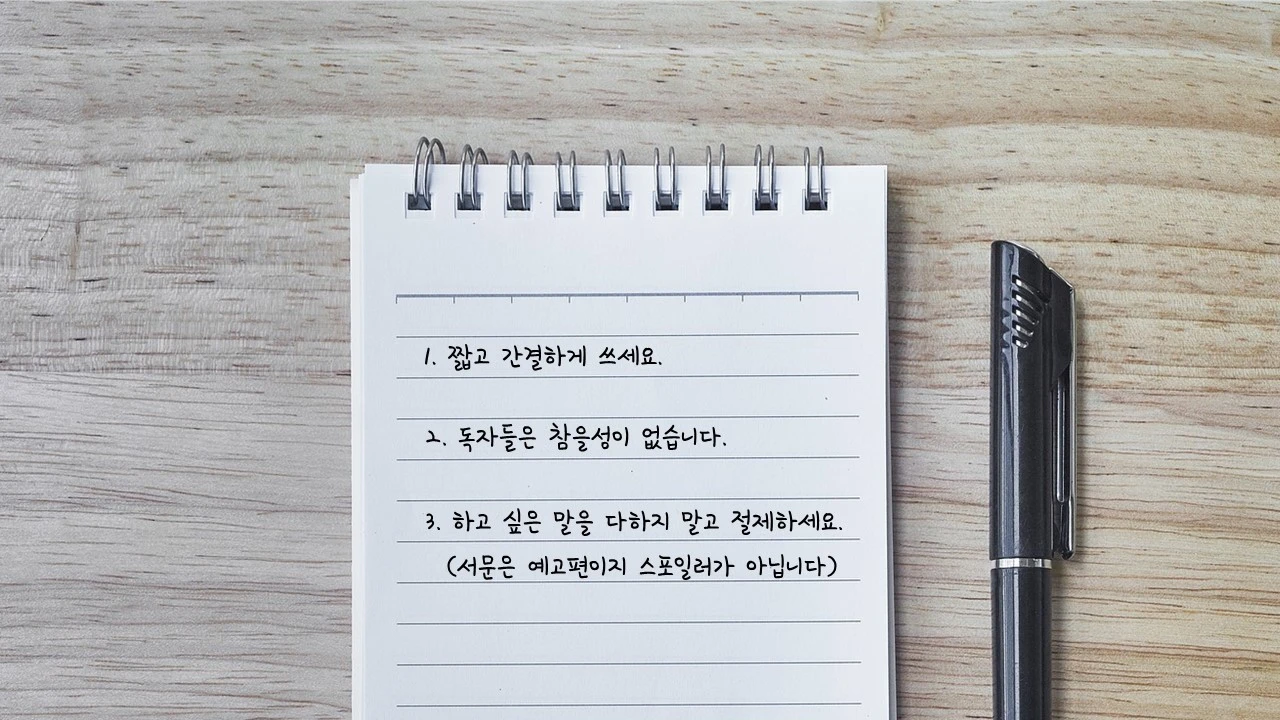 1. 짧고 간결하게 쓰세요.
2. 독자들은 참을성이 없습니다.
3. 하고 싶은 말을 다하지 말고 절제하세요.
(서문은 예고편이지 스포일러가 아닙니다)